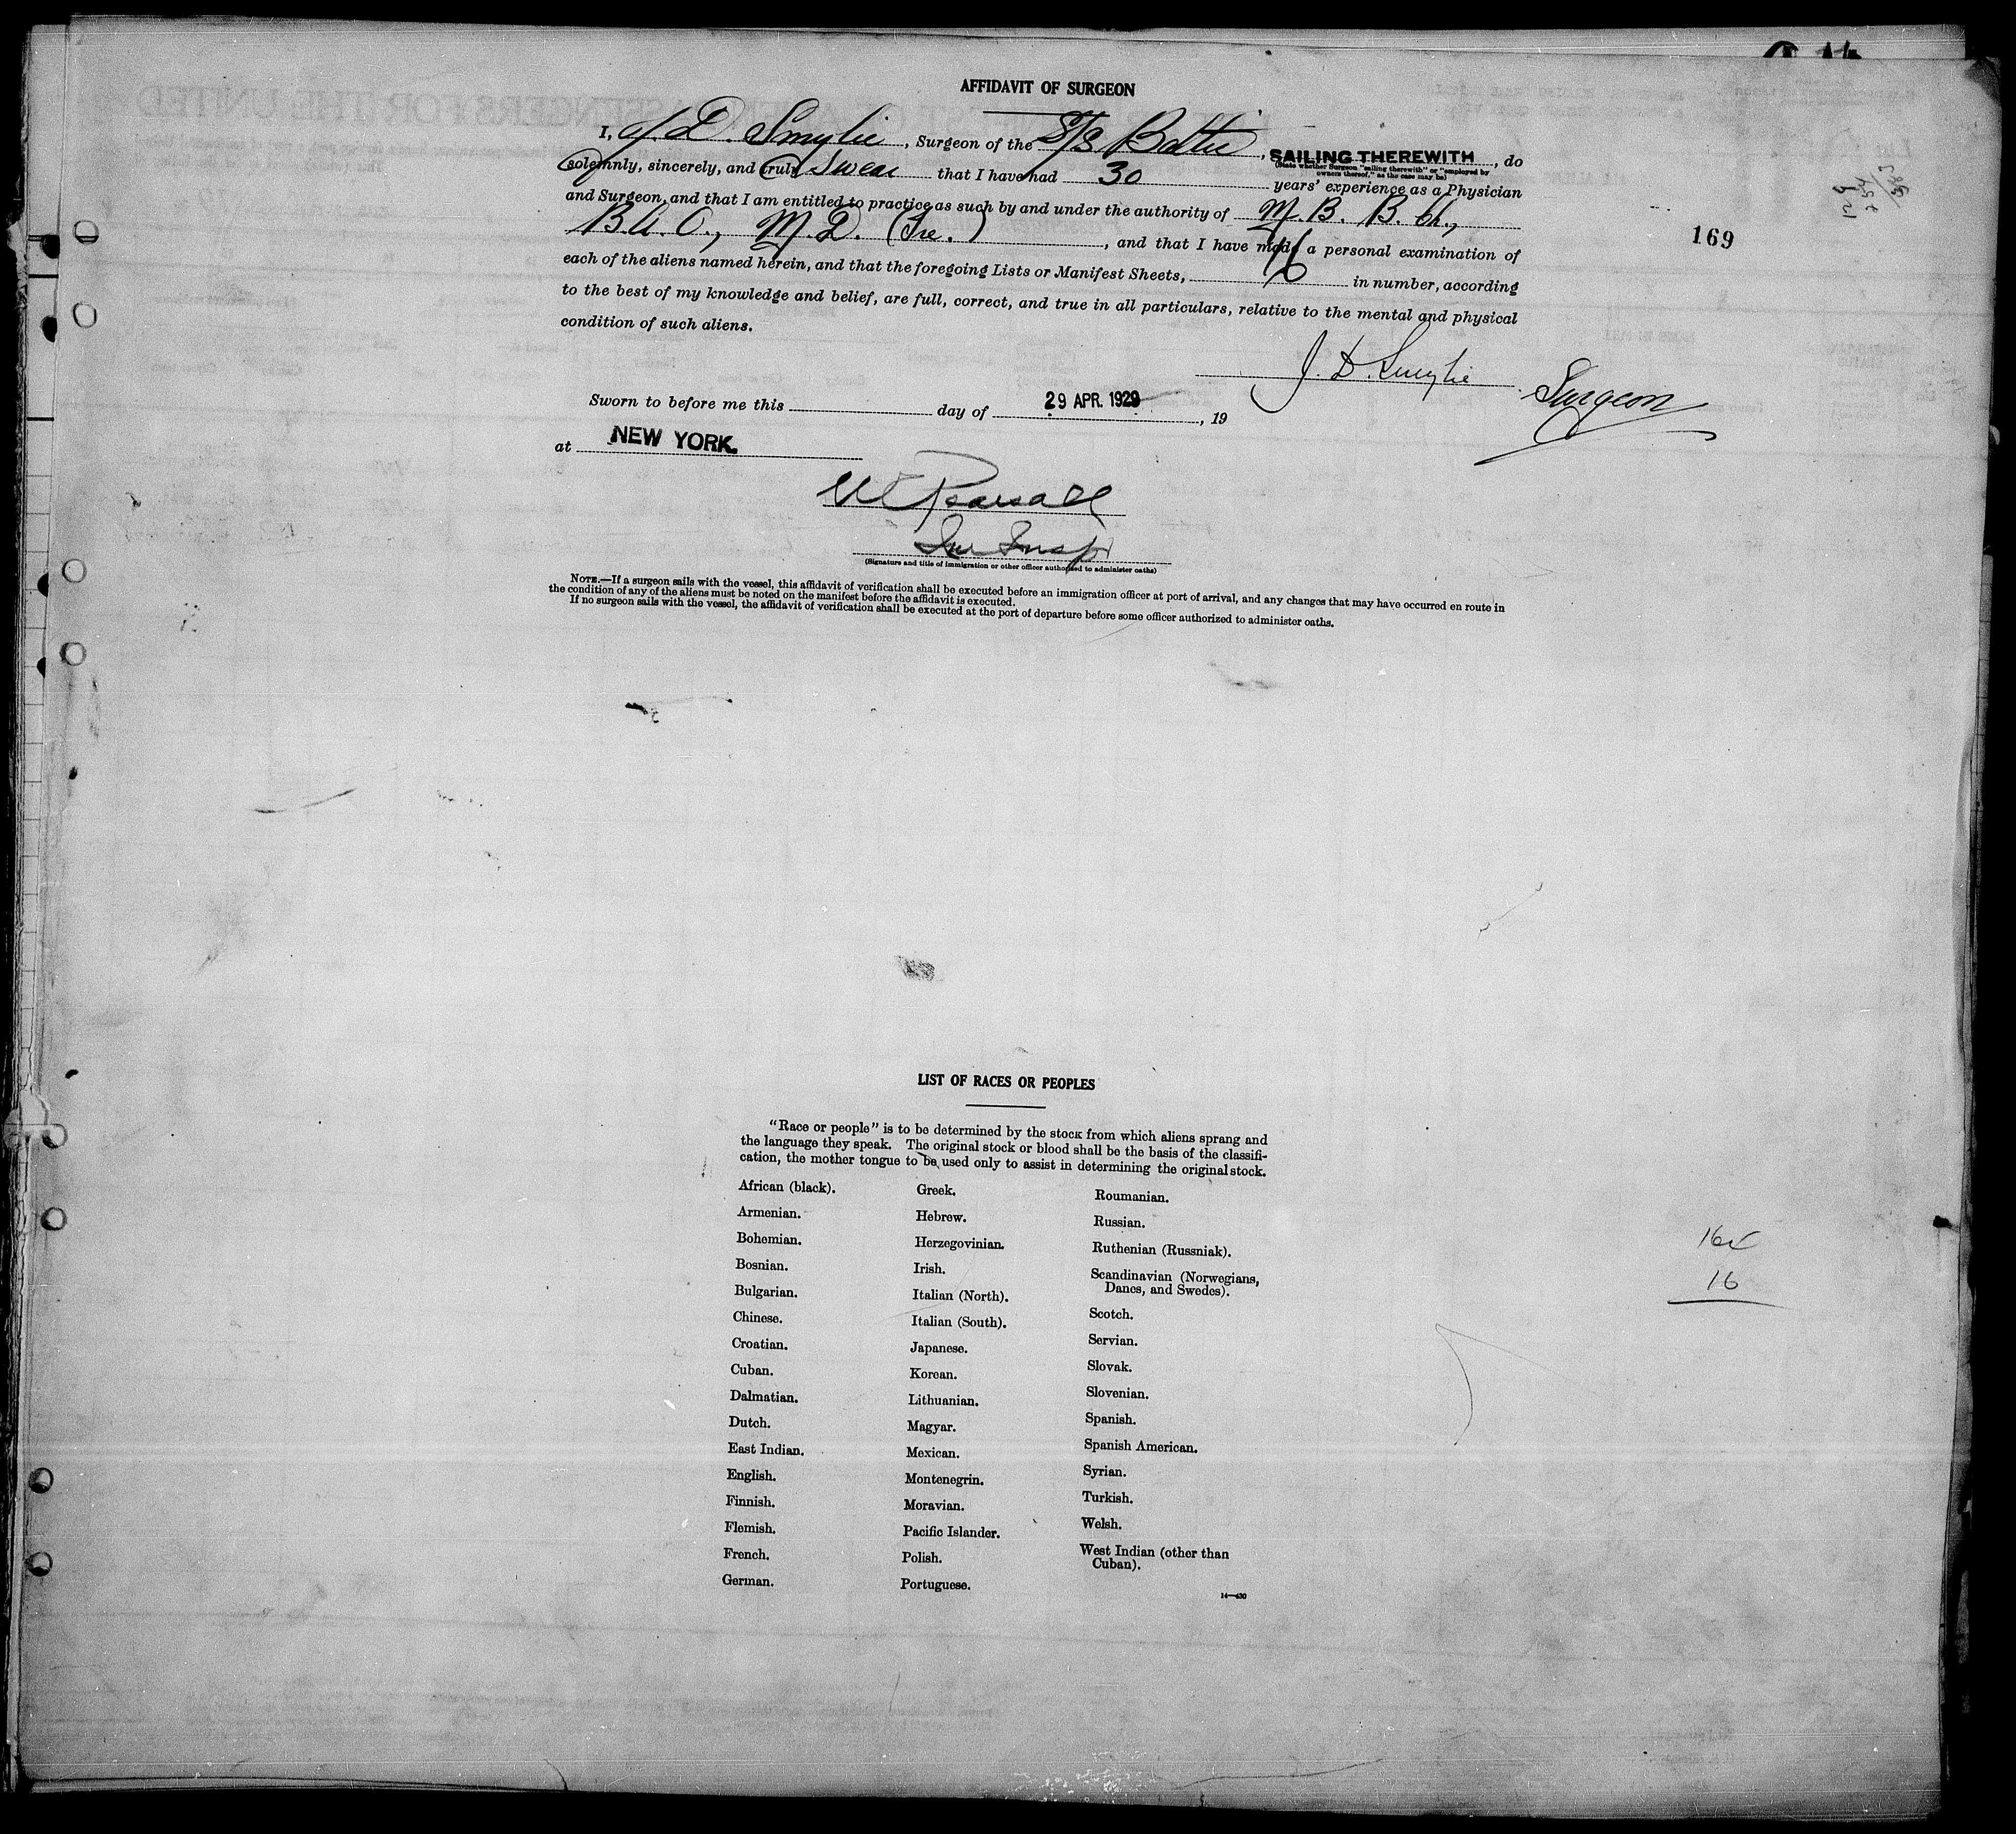 AFFIDAVIT OF SURGEON
I, J. D. Smylie, Surgeon of the S/S Baltic, SAILING THEREWITH, do
(State whether Surgeon "sailing therewith" or "employed by
owners thereof," as the case may be)
solemnly, sincerely, and truly Swear that I have had 30 years' experience as a Physician
and Surgeon, and that I am entitled to practice as such by and under the authority of M. B. B. Ch.,
B.A.O., M.D. (Ire.), and that I have made a personal examination of
each of the aliens named herein, and that the foregoing Lists or Manifest Sheets, 16 in number, according
to the best of my knowledge and belief, are full, correct, and true in all particulars, relative to the mental and physical
condition of such aliens.
169
J. D. Smylie
Surgeon
Sworn to before me this day of 29 APR. 1929, 19
at NEW YORK.
Imm Insp
(Signature and title of immigration or other officer authorized to administer oaths)
NOTE.—If a surgeon sails with the vessel, this affidavit of verification shall be executed before an immigration officer at port of arrival, and any changes that may have occurred en route in
the condition of any of the aliens must be noted on the manifest before the affidavit is executed.
If no surgeon sails with the vessel, the affidavit of verification shall be executed at the port of departure before some officer authorized to administer oaths.
LIST OF RACES OR PEOPLES
"Race or people" is to be determined by the stock from which aliens sprang and
the language they speak. The original stock or blood shall be the basis of the classifi-
cation, the mother tongue to be used only to assist in determining the original stock.
African (black).
Armenian.
Bohemian.
Bosnian.
Bulgarian.
Chinese.
Croatian.
Cuban.
Dalmatian.
Dutch.
East Indian.
English.
Finnish.
Flemish.
French.
German.
Greek.
Hebrew.
Herzegovinian.
Irish.
Italian (North).
Italian (South).
Japanese.
Korean.
Lithuanian.
Magyar.
Mexican.
Montenegrin.
Moravian.
Pacific Islander.
Polish.
Portuguese.
Roumanian.
Russian.
Ruthenian (Russniak).
Scandinavian (Norwegians,
Danes, and Swedes).
Scotch.
Servian.
Slovak.
Slovenian.
Spanish.
Spanish American.
Syrian.
Turkish.
Welsh.
West Indian (other than
Cuban).
14—430
16